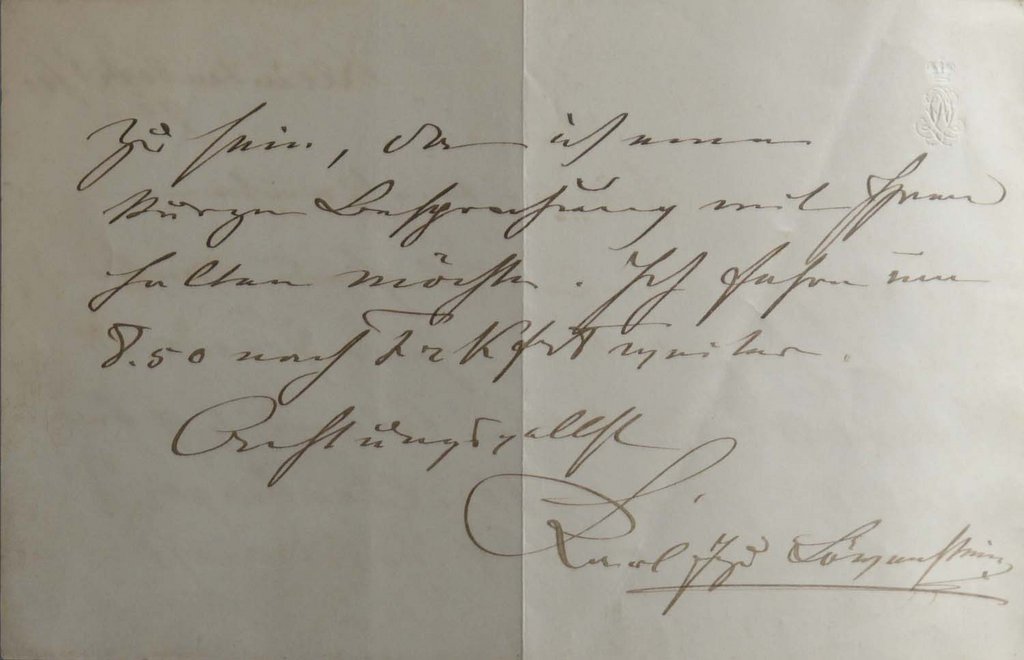 zu sein, da ich eine
kurze Besprechung mit Ihnen
halten möchte. Ich fahre um
8.50 nach Frkfrt weiter.
Achtungsvollst
Karl Fz Löwenstein